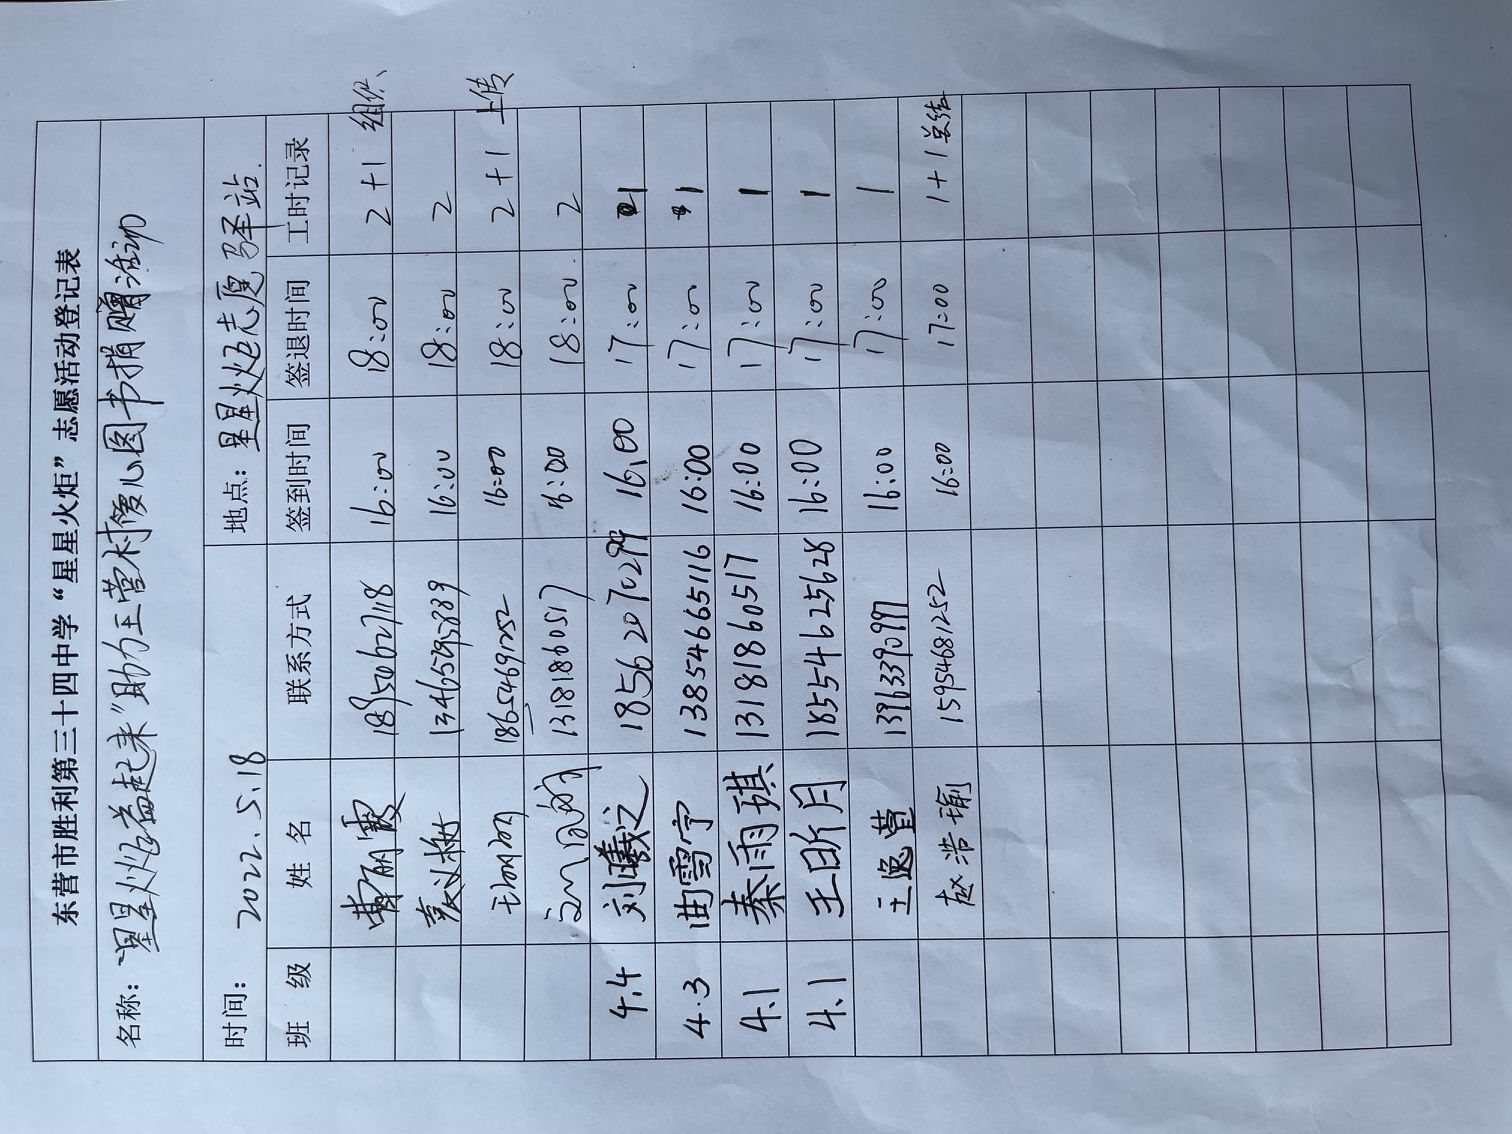 东营市胜利第三十四中学“星星火炬”志愿活动登记表
名称：“星星火炬益起来”助力王营村婴儿图书捐赠活动
时间： 2022.5.18 地点：星星火炬志愿驿站
班 级 姓 名 联系方式 签到时间 签退时间 工时记录
曹丽霞 16:00 18:00 2+1 组织、
13465795889 16:00 18:00 2
18654691252 16:00 18:00 2+1 上传
13181860517 16:00 18:00 2
4.4 刘曦之 18562070299 16:00 17:00 1
4.3 曲雪宁 13854665116 16:00 17:00 1
4.1 秦雨琪 13181860517 16:00 17:00 1
4.1 王昕月 18554625628 16:00 17:00 1
王逸萱 13963390997 16:00 17:00 1
赵浩瑜 15954681252 16:00 17:00 1+1总结